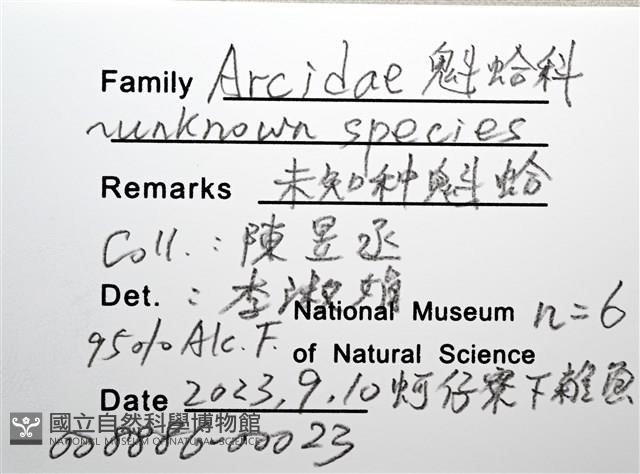 Family Arcidae 魁蛤科
unknown species
Remarks 未知种魁蛤
Coll.: 陳昱丞
Det. : 李淑
National Museum n=6
95% Alc. F. of Natural Science
Date 2023.9.10 蚵仔寮下雜魚
國立自然科學博物館
NATIONAL MUSEUM OF NATURAL SCIENCE
008866-00023